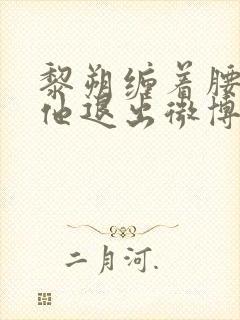 黎朔缠着腰
他退出微博
二月河.